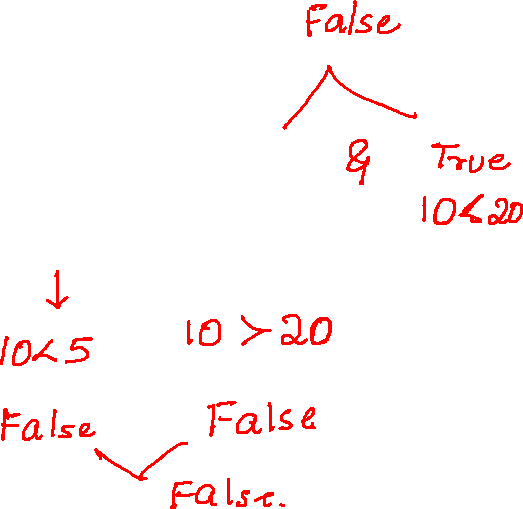 False
& True
10<20
10<5 10>20
False False
False.